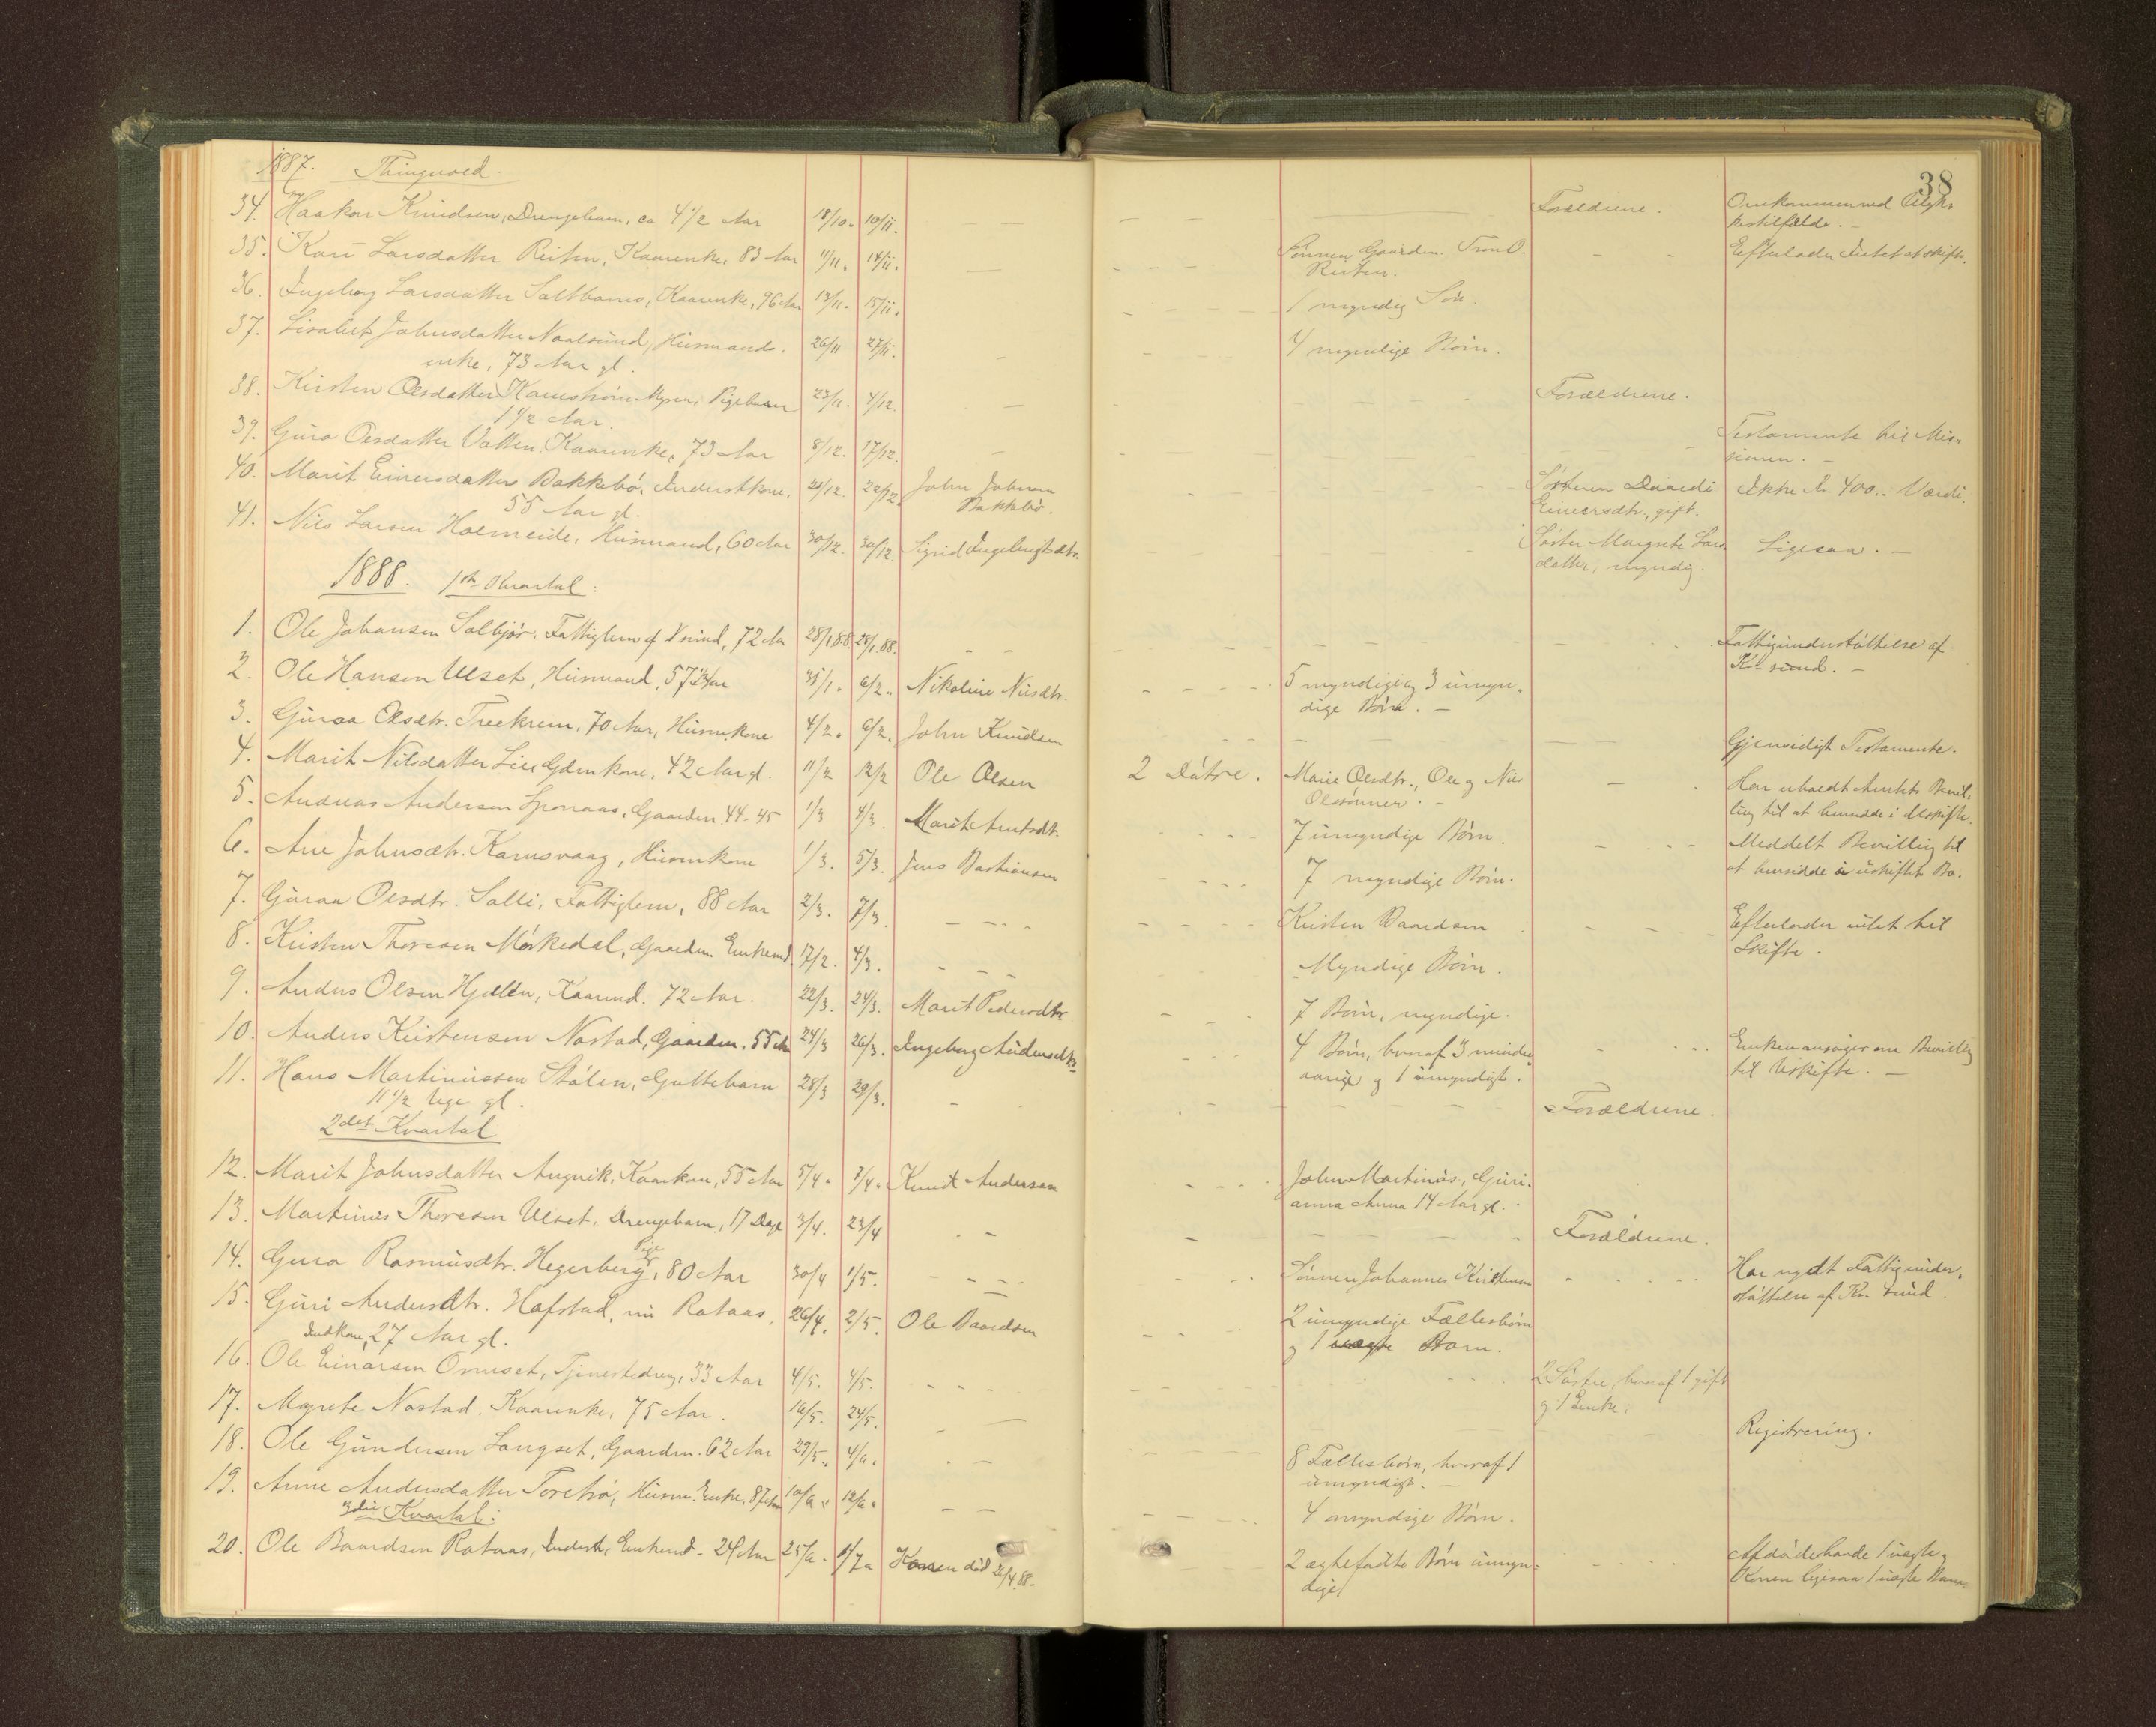 1887. Thingvold.
38
34. Haakon Knudsen, Drengebarn, ca 4 1/2 Aar 18/10. 10/11. Forældrene. Omkommen ved Ulyks
kestilfælde. -
35. Kari Larsdatter Reiten, Kaarenke, 83 Aar 11/11. 14/11. Sønnen Gaardm. Tron O.
Reiten. Efterlader Intet at skifte.
36. Ingeborg Larsdatter Saltbones, Kaarenke, 96 Aar 13/11. 15/11. 1 myndig Søn.
37. Lisabet Johnsdatter Naalsund, Husmands. 26/11 27/11. 4 myndige Børn.
enke, 73 Aar gl.
38. Kirsten Olesdatter Myren, Pigebarn 23/11. 4/12. Forældrene.
1 1/2 Aar.
39. Gura Olesdatter Vatten. Kaarenke, 73 Aar 8/12. 17/12. Testamente til Mis-
sionen. -
40. Marit Einersdatter Bakkebø, Inderstkone, 20/12. 22/12. John Johnsen
Bakkebø. Søsteren Baardi
Einersdtr., gift. Ikke Kr. 400.. Værdi.
55 Aar gl.
41. Nils Larsen Holmeide, Husmand, 60 Aar 30/12. 30/12. Sigrid Ingebrigtsdtr. Søster Margrete Lars
datter, myndig. Ligesaa. -
1888. 1ste Kvartal:
1. Ole Johansen Solbjør, Fattiglem af Krsund, 72 Aar 28/1.88. 28/1.88. Fattigunderstøttelse af
Kr. sund. -
2. Ole Hansen Ulset, Husmand, 57 Aar 31/1. 6/2. Nikoline Nilsdtr. 5 myndige og 3 umyn.
dige Børn. -
3. Guroa Olsdtr. Treekrem, 70 Aar, Husm.kone 4/2. 6/2. John Knudsen Gjensidigt Testamente.
4. Marit Nilsdatter Lien Gdm.kone, 42 Aar gl. 11/2 12/2 Ole Olsen 2 Døtre. Marie Olsdtr., Ole og Nils
Olssønner. - Har erholdt Amtets Bevil.
ling til at hensidde i Uskifte.
5. Andreas Andersen Sponaas, Gaardm. 44-45 1/3 4/3. Marit Arntsdt. 7 umyndige Børn. Meddelt Bevilling til
at hensidde i uskiftet Bo.
6. Ane Johnsdtr. Karnsvaag, Husm.kone 1/3. 5/3. Jens Bastiansen 7 myndige Børn.
7. Guroa Olsdtr. Salli, Fattiglem, 88 Aar 2/3. 7/3. Kristen Baardsen Efterlader intet til
Skifte.
8. Kristen Thoresen Mørkedal, Gaardm. Enkemd. 17/2. 4/3. Myndige Børn.
9. Anders Olsen Hjellen, Kaarmd. 72 Aar. 22/3. 24/3. Marit Pedersdtr 7 Børn, myndige.
10. Anders Kristensen Nastad, Gaardm. 55 Aar 24/3 26/3. Ingeborg Andersdtr. 4 Børn, hvoraf 3 mindre
aarige og 1 umyndigt. Enken ansøger om Bevilling
til Uskifte. -
11. Hans Martinussen Stølen, Guttebarn 28/3 29/3. Forældrene.
11 1/2 Uge gl.
2det Kvartal
12. Marit Johnsdatter Angvik, Kaarkone, 55 Aar 5/4. 7/4. Knut Andersen John Martinus, Guri.
anna Anna 14 Aar gl.
13. Martinus Thoresen Ulset, Drengebarn, 17 Dage 3/4. 23/4 Forældrene.
14. Guro Rasmusdtr. Hegerberg, Pige, 80 Aar 30/4 1/5. Sønnen Johannes Kristensen Har nydt Fattigunder.
støttelse af Kr. sund.
15. Guri Andersdtr. Hafstad, nu Rotaas, 26/4. 2/5. Ole Baardsen 2 umyndige Fællesbørn
Indkone, 27 Aar gl. og 1 uægte Barn.
16. Ole Einarsen Ormset, Tjenestedreng, 33 Aar 4/5. 4/5. 2 Søstre, hvoraf 1 gift
og 1 Enke.
17. Magrete Nastad. Kaarenke, 75 Aar. 16/5. 24/5. Registrering.
18. Ole Gundersen Langset, Gaardm. 62 Aar 29/5. 4/6. 8 Fællesbørn, hvoraf 1
umyndigt. -
19. Anne Andersdatter Torehø, Husm. Enke, 87 Aar 10/6. 12/6. 4 myndige Børn.
3die Kvartal:
20. Ole Baardsen Rotaas, Inderst, Enkemd. 24 Aar 25/6. 1/7. Konen død 26/4.88. 2 ægtefødte Børn umyn-
dige Afdøde havde 1 uægte,
Konen ligesaa 1 uægte Barn